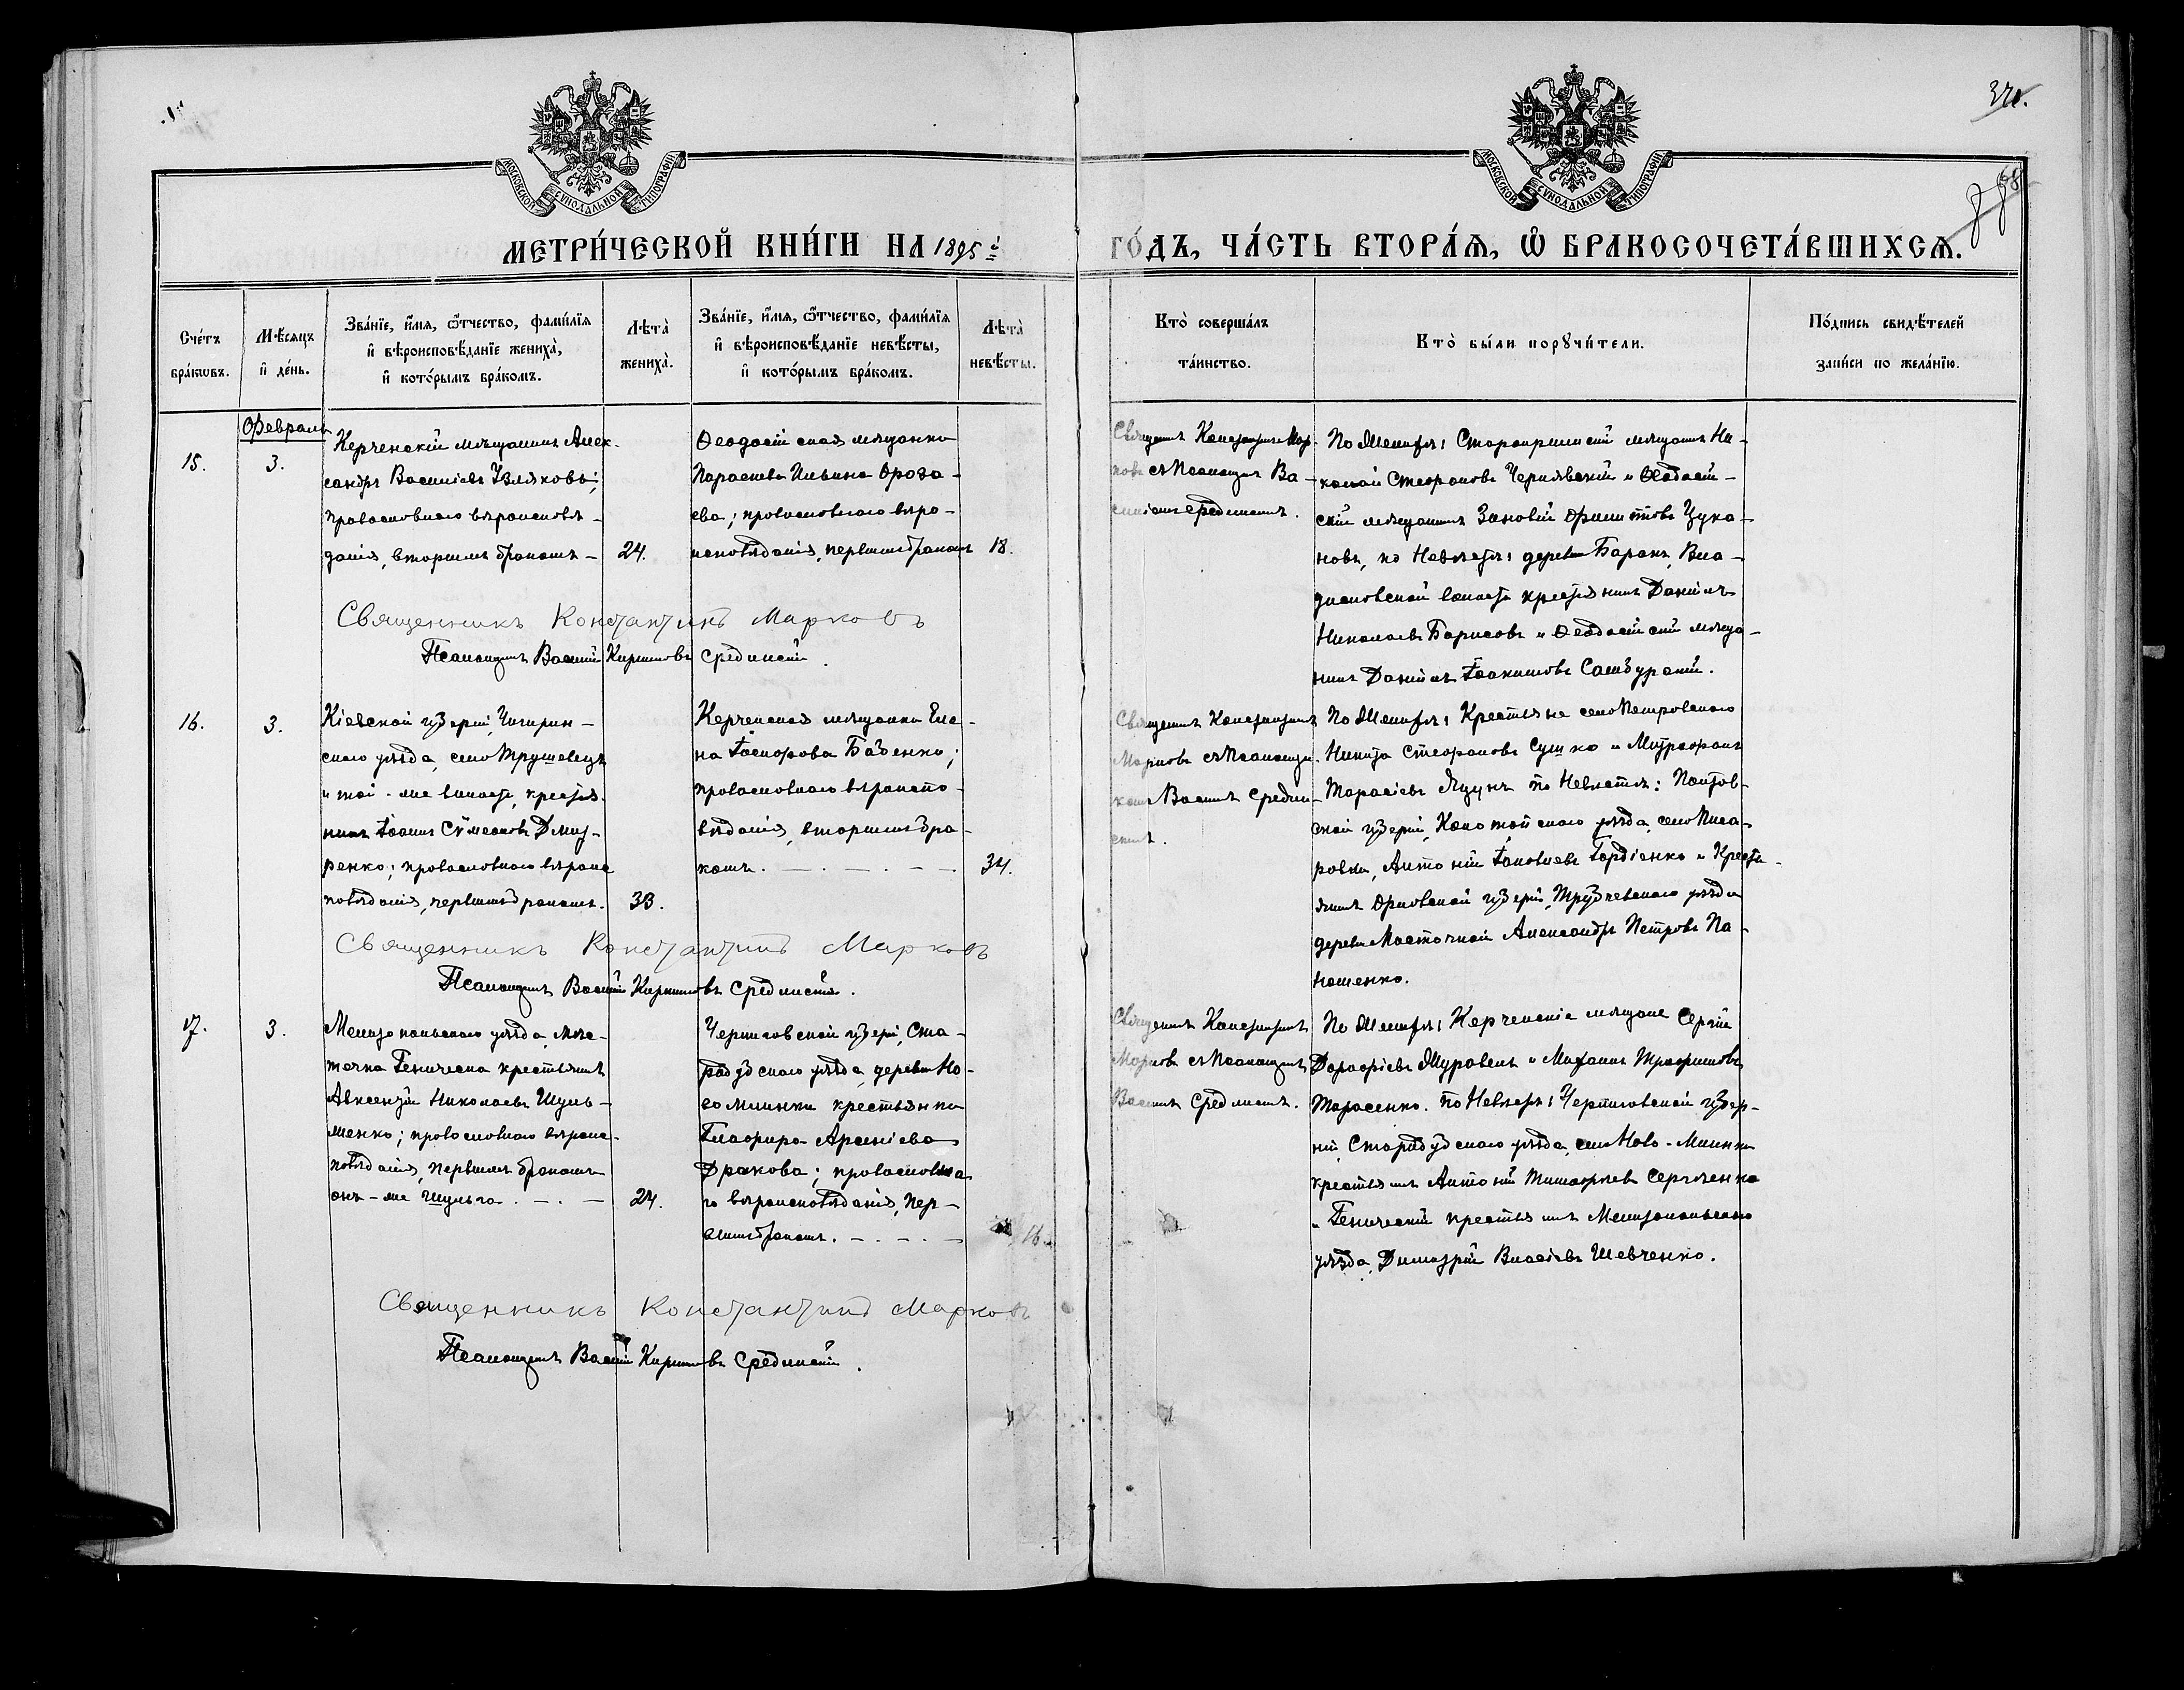 МОСКОВСКОЙ СѴНОДАЛЬНОЙ ТИПОГРАФІИ
МОСКОВСКОЙ СѴНОДАЛЬНОЙ ТИПОГРАФІИ
МЕТРИ́ЧЕСКОЙ КНИ́ГИ НА 1895й
ГО́ДЪ, ЧА́СТЬ ВТОРА́Я, Ѡ БРАКОСОЧЕТА́ВШИХСЯ.
Сче́тъ бра́кѡвъ.
Мѣ́сяцъ и де́нь.
Зва́нїе, и́мя, ѻ́тчество, фами́лїя
и вѣроисповѣ́данїе жениха̀,
и кото́рымъ бра́комъ.
Лѣта̀ жениха̀.
Зва́нїе, и́мя, ѻ́тчество, фами́лїя
и вѣроисповѣ́данїе невѣ́сты,
и кото́рымъ бра́комъ.
Лѣта̀ невѣ́сты.
Кто̀ соверша́лъ
та́инство.
Кто̀ бы́ли порꙋчи́тели.
По́дпись свидѣ́телей
за́писи по жела́нїю.
Февраль
15.
3.
Керченскій мѣщанинъ Алек-
сандръ Василіевъ Узляковъ;
православнаго вѣроисповѣ-
данія, вторымъ бракомъ –
24.
Ѳеодосійская мѣщанка
Параскева Ильина
православнаго вѣро-
исповѣданія, первымъ бракомъ
18.
Священникъ Константинъ Мар-
ковъ съ Псаломщик. Ва-
силіемъ Срединскимъ.
По Женихѣ: Старокрымскій мѣщанинъ Ни-
колай Стефановъ Чернявскій и Ѳеодосій-
скій мѣщанинъ Зиновій Цука-
новъ, по Невѣстѣ: деревни Баракъ, Вла-
диславской волости крестьянинъ Даніилъ
Николаевъ Борисовъ и Ѳеодосійскій мѣща-
нинъ Даніилъ Іоакимовъ
Священникъ Константинъ Марковъ
Псаломщикъ Василій Кирилловъ Срединскій.
16.
3.
Кіевской губерніи, Чигирин-
скаго уѣзда, села Трушевецъ
и той-же волости, крестья-
нинъ Іоаннъ Сѵмеоновъ Дмит-
ренко; православнаго вѣроис-
повѣданія, первымъ бракомъ.
33.
Керченская мѣщанка Еле-
на Іосифова Бабенко;
православнаго вѣроиспо-
вѣданія, вторымъ бра-
комъ. – . – . – –
34.
Священникъ Константинъ
Марковъ съ Псаломщи-
комъ Василіемъ Средин-
скимъ.
По Женихѣ: Крестьяне села Петровскаго
Никита Стефановъ Сушко и Митрофанъ
Тарасіевъ Яцунъ по Невѣстѣ: Полтав-
ской губерніи, уѣзда, села Писа-
ревки, Антоній Гордіенко и Кресть-
янинъ Орловской губерніи, Трубчевскаго уѣзда
деревни Александръ Петровъ Па-
нашенко.
Священникъ Константинъ Марковъ
Псаломщикъ Василій Кирилловъ Срединскій.
17.
3.
Мелитопольскаго уѣзда, мѣс-
течка Геническа крестьянинъ
Авксентій Николаевъ Шуль-
женко; православнаго вѣроис-
повѣданія, первымъ бракомъ
онъ-же Шульга. – . –
24.
Черниговской губерніи, Ста-
родубскаго уѣзда, деревни Но-
во Млинки крестьянка
Глафира Арсеніева
Дракова; православна-
го вѣроисповѣданія, пер-
вымъ бракомъ. – . – . –
16.
Священникъ Константинъ
Марковъ съ Псаломщикомъ
Василіемъ Срединскимъ.
По Женихѣ: Керченскіе мѣщане Сергій
Дорофіевъ Журавель и Михаилъ Трофимовъ
Тарасенко. по Невѣстѣ: Черниговской губер-
ніи, Стародубскаго уѣзда, села Ново-Млинки
крестьянинъ Антоній Тимофіевъ Сергіенко
и Геническій крестьянинъ Мелитопольскаго
уѣзда, Димитрій Власіевъ Шевченко.
Священникъ Константинъ Марковъ
Псаломщикъ Василій Кирилловъ Срединскій.